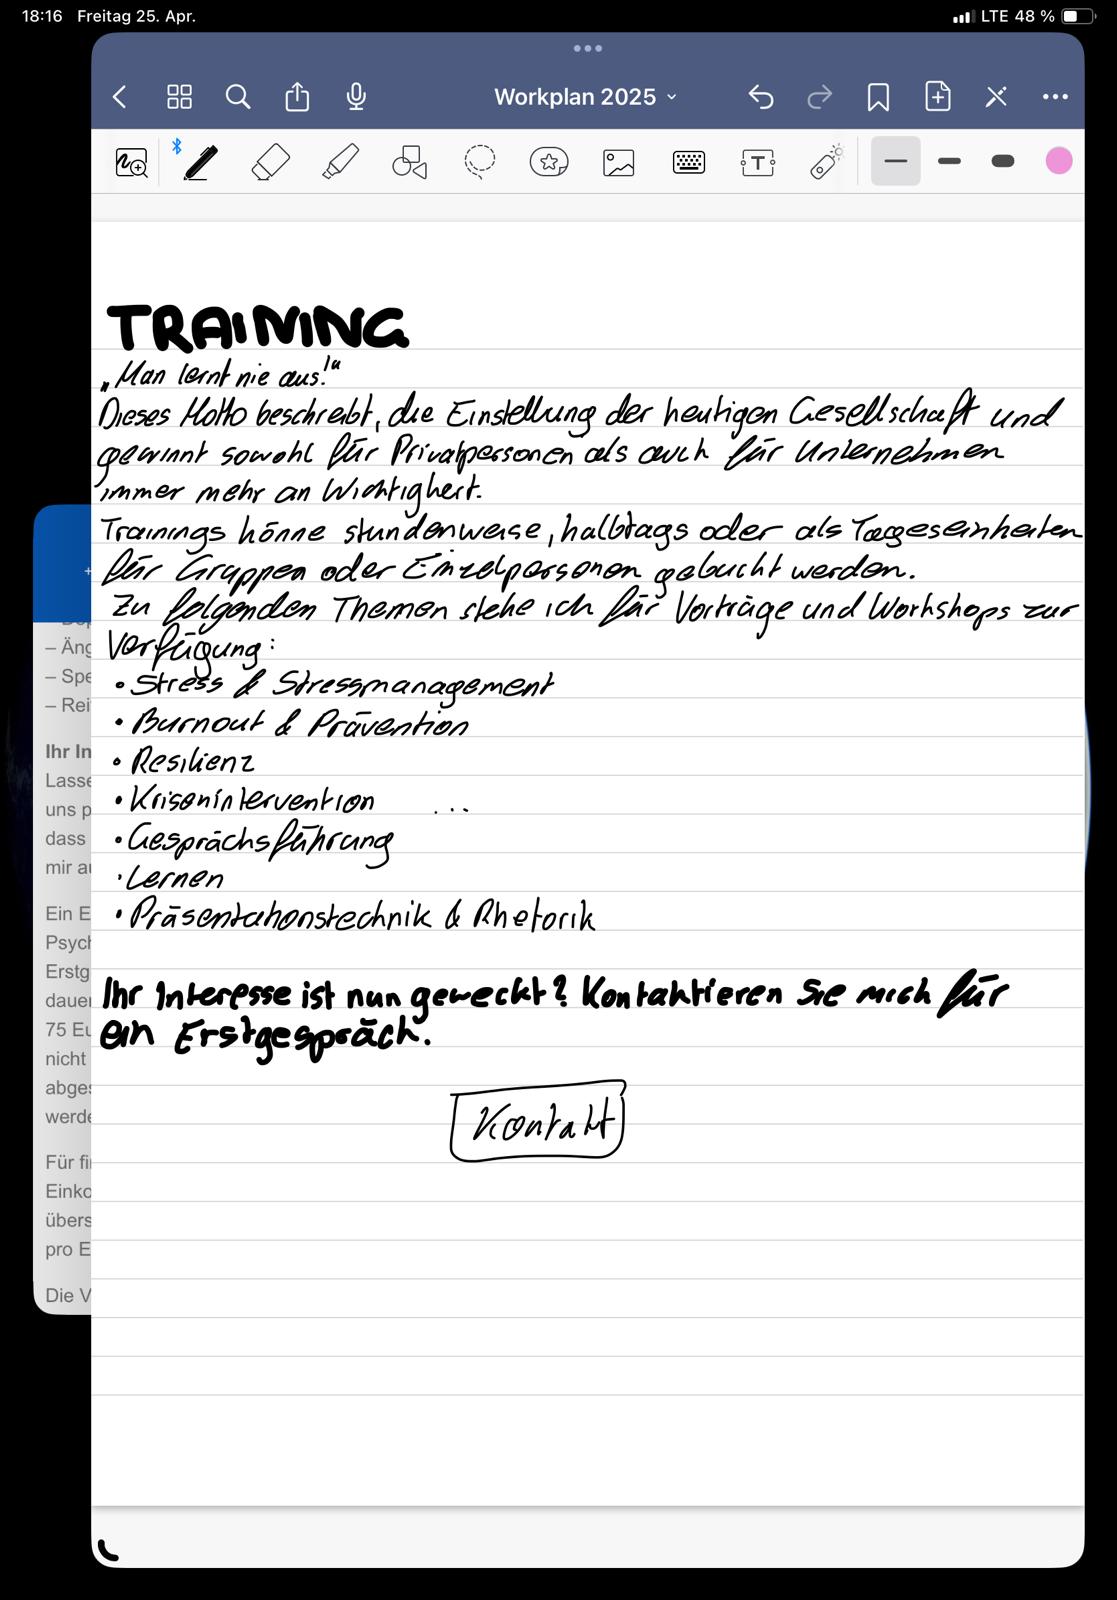 18:16 Freitag 25. Apr. LTE 48 %
Workplan 2025
TRAINING
„Man lernt nie aus!“
Dieses Motto beschreibt, die Einstellung der heutigen Gesellschaft und
gewinnt sowohl für Privatpersonen als auch für Unternehmen
immer mehr an Wichtigkeit.
Trainings könne stundenweise, halbtags oder als Tageseinheiten
für Gruppen oder Einzelpersonen gebucht werden.
Zu folgenden Themen stehe ich für Vorträge und Workshops zur
Verfügung:
• Stress & Stressmanagement
• Burnout & Prävention
• Resilienz
• Krisenintervention ...
• Gesprächsführung
• Lernen
• Präsentationstechnik & Rhetorik
Ihr Interesse ist nun geweckt? Kontaktieren Sie mich für
ein Erstgespräch.
Kontakt
– Äng
– Spe
– Rei
Ihr In
Lasse
uns p
dass
mir au
Ein E
Psych
Erstg
dauer
75 Eu
nicht
abges
werde
Für fi
Einko
übers
pro E
Die V